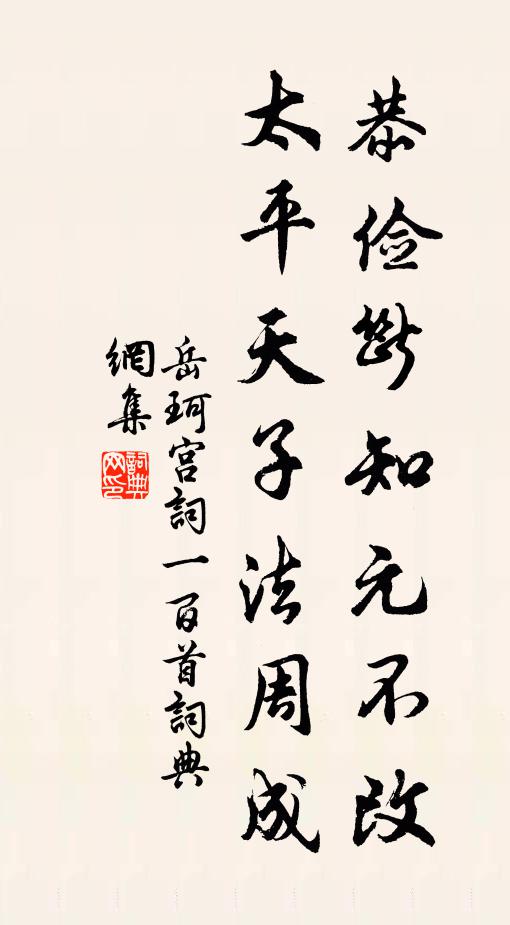 恭儉斷知元不改
太平天子法周成
岳珂宮詞一百首詞典
網集
詞典
网印